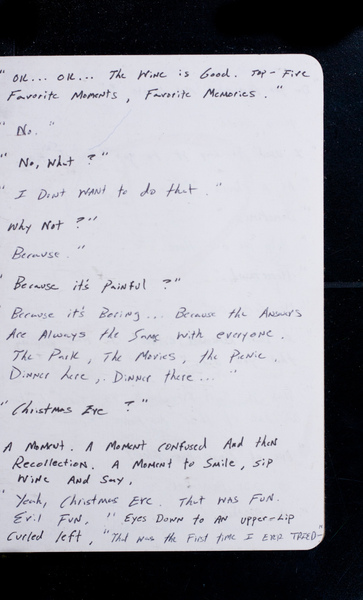 " OK... OK... The Wine is Good. Top-Five
Favorite Moments, Favorite Memories. "
" No. "
" No, What ? "
" I Dont Want to do that. "
Why Not ? "
Because. "
" Because it's Painful ? "
Because it's Boring... Because the Answers
Are Always the Same with everyone.
The Park, The Movies, the Picnic,
Dinner here, Dinner there... "
" Christmas Eve ? "
A Moment. A Moment confused And then
Recollection. A Moment to Smile, sip
Wine And Say,
" Yeah, Christmas Eve. That was Fun.
Evil Fun. " Eyes Down to An upper-Lip
Curled left, "That was the First time I Ever TRIED-"